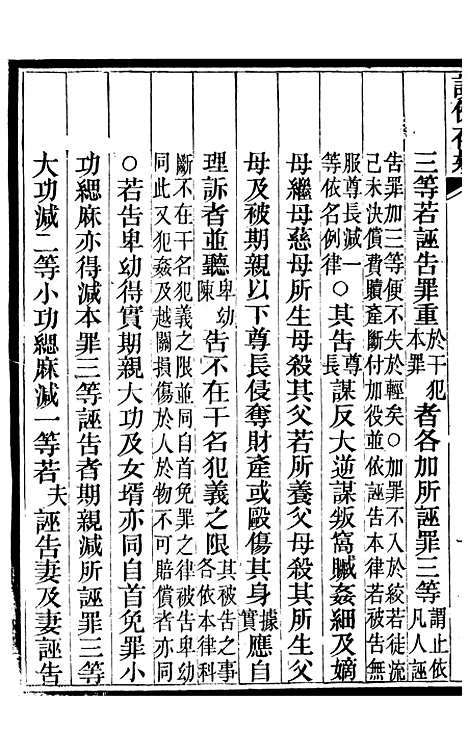 三等若誣告罪重於干犯本罪者各加所誣罪三等謂止依凡人誣
告罪加三等便不失於輕矣○加罪不入於絞若徒流
已未決償費贖產斷付加役並依誣告本律若被告無
服尊長減一等依名例律○其告尊長謀反大逆謀叛窩贓姦細及嫡
母繼母慈母所生母殺其父若所養父母殺其所生父
母及被期親以下尊長侵奪財產或毆傷其身據實應自
理訴者並聽卑幼陳告不在干名犯義之限其被告之事各依本律科
斷不在干名犯義之限並同自首免罪之律被告卑幼
同此又犯姦及越關損傷於人於物不可賠償者亦同
○若告卑幼得實期親大功及女壻亦同自首免罪小
功緦麻亦得減本罪三等誣告者期親減所誣罪三等
大功減二等小功緦麻減一等若夫誣告妻及妻誣告